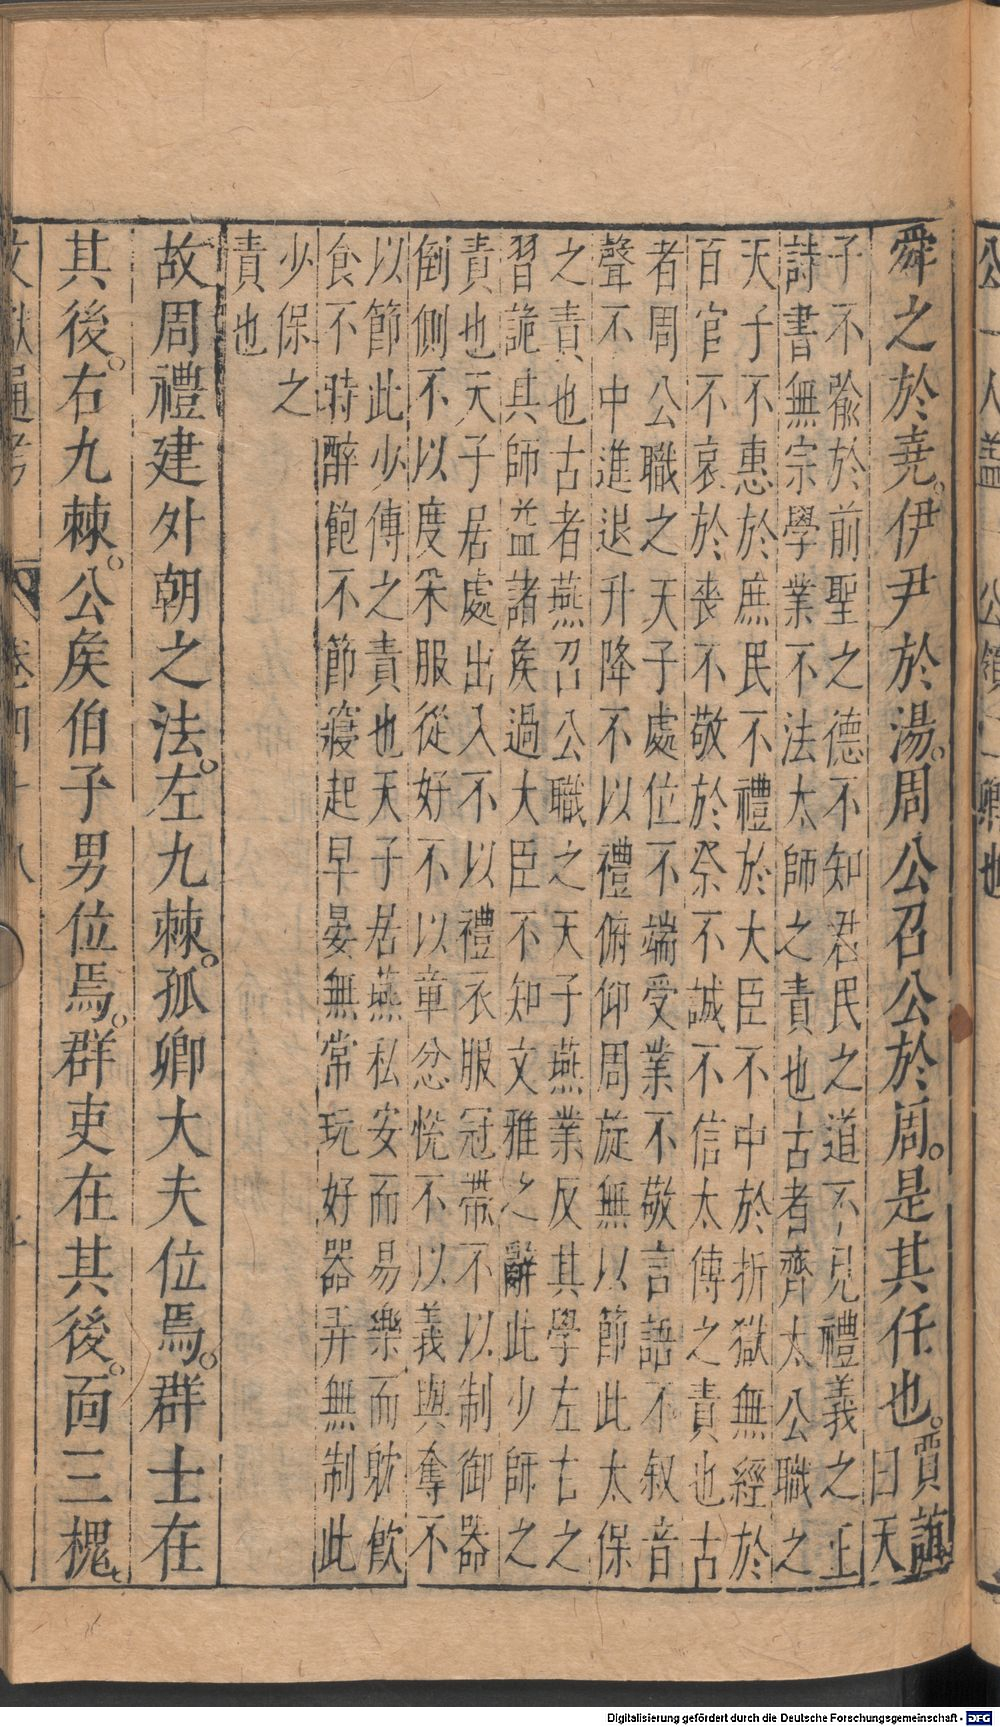 公一人蓋一公領二鄉也
舜之於堯。伊尹於湯。周公召公於周。是其任也。賈誼
曰天
子不喩於前聖之德不知君民之道不見禮義之正
詩書無宗學業不法太師之責也古者齊太公職之
天子不惠於庶民不禮於大臣不中於折獄無經於
百官不哀於喪不敬於祭不誠不信太傅之責也古
者周公職之天子處位不端受業不敬言語不叙音
聲不中進退升降不以禮俯仰周旋無以節此太保
之責也古者燕召公職之天子燕業反其學左右之
習詭其師益諸矦過大臣不知文雅之辭此少師之
責也天子居處出入不以禮衣服冠帶不以制御器
倒側不以度采服從好不以章忿恱不以義與奪不
以節此少傅之責也天子居燕私安而易樂而躭飲
食不時醉飽不節寢起早晏無常玩好器弄無制此
少保之
責也
故周禮建外朝之法。左九棘。孤卿大夫位焉。群士在
其後。右九棘。公矦伯子男位焉。群吏在其後。面三槐、
文獻通考 卷四十八
Digitalisierung gefördert durch die Deutsche Forschungsgemeinschaft - DFG